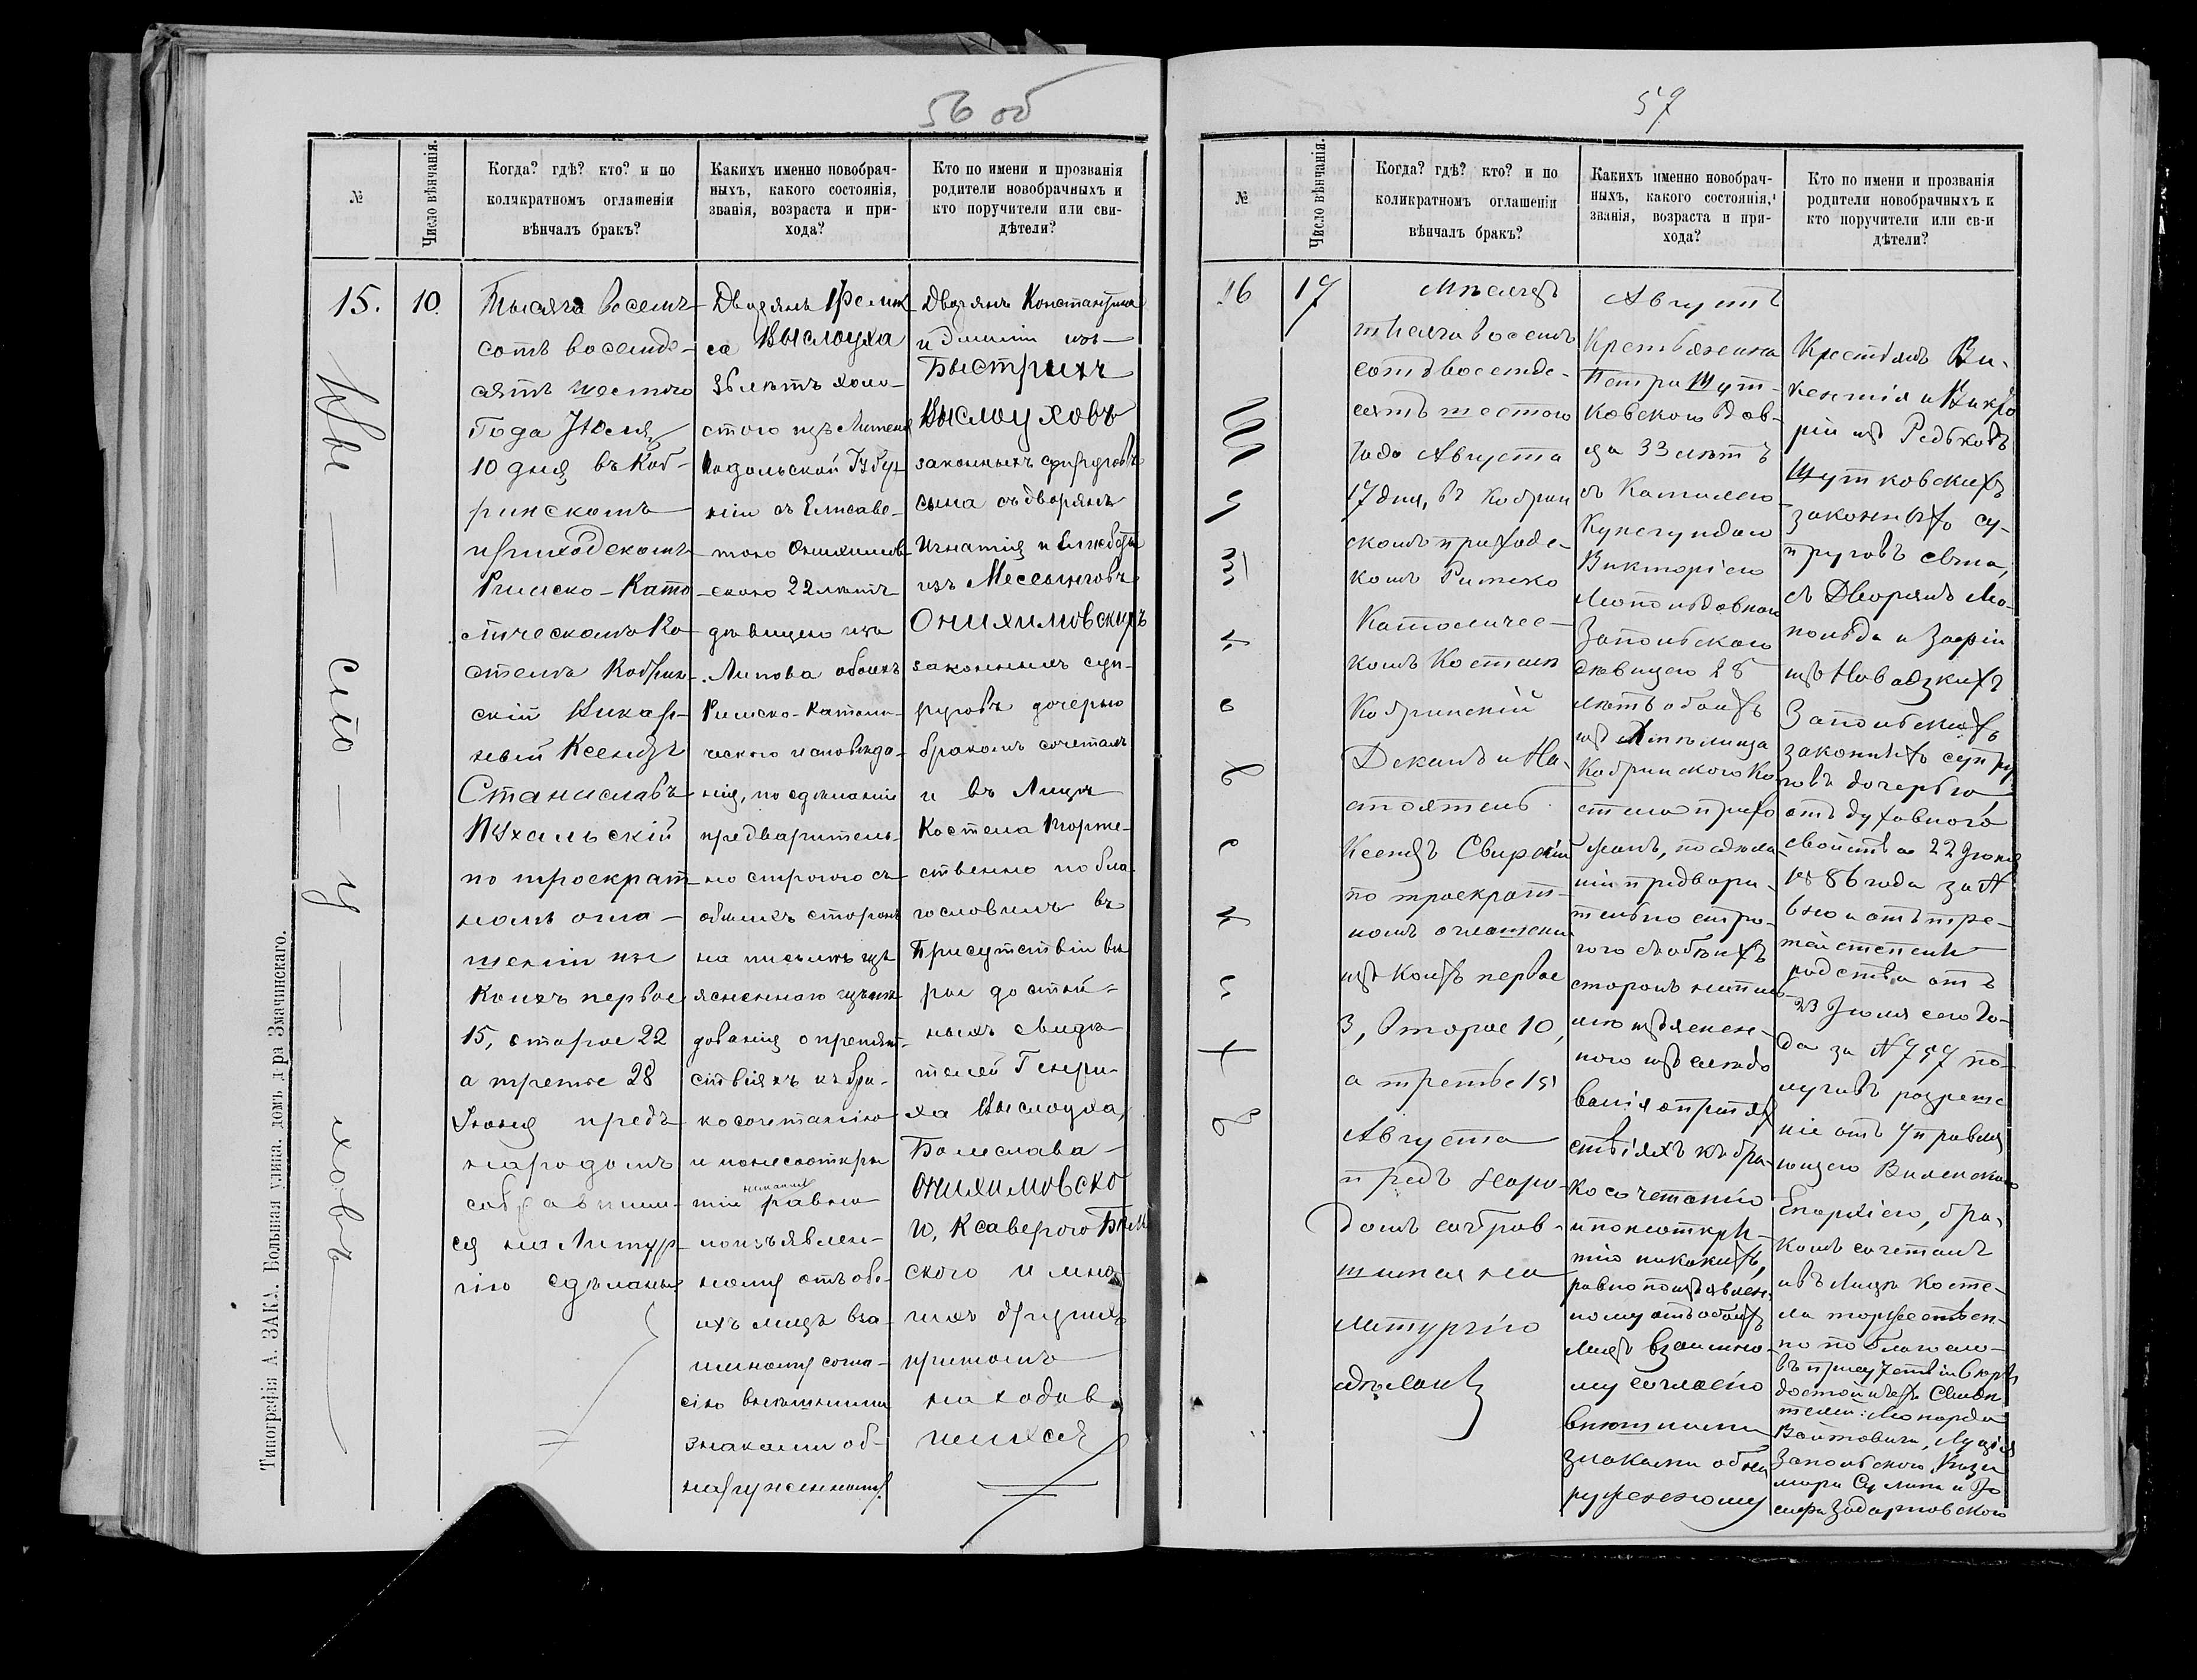 56 об
№
Число вѣнчанія.
Когда? гдѣ? кто? и по
коликратномъ оглашеніи
вѣнчалъ бракъ?
Какихъ именно новобрач-
ныхъ, какого состоянія,
званія, возраста и при-
хода?
Кто по имени и прозванія
родители новобрачныхъ и
кто поручители или сви-
дѣтели?
15.
10.
Вы-
сло-
у-
ховъ
Тысяча восемь-
сотъ восемьде-
сятъ шестого
Года Іюля
10 дня въ Коб-
ринскомъ
приходскомъ
Римско-Като
лическомъ Ко
стелѣ Кобрин-
скій Викар-
ный Ксендзъ
Станиславъ
Пухальскій
по троекрат
номъ огла-
шеніи изъ
коихъ первое
15, второе 22
а третье 28
Іюня предъ
народомъ
собравшим-
ся на Литур-
гію сдѣланы
Дворянъ Феликса
са Выслоуха
лѣтъ холо-
стого изъ
Подольской Губер
ніи съ Елисаве-
тою Онихимов
скою 22 лѣтъ
дѣвицею изъ
Липова обоихъ
Римско-Католи-
ческого исповѣда-
нія, по сдѣланіи
предваритель-
но строгого съ
обѣихъ сторонъ
на письмѣ изъ
ясненного изъслѣ
дованія о препят-
ствіяхъ къ бра-
косочетанію
и понеоткры
тіи никакихъ равно
поизъявлен-
ному отъ обо-
ихъ лицъ вза-
имному согла-
сію внешними
знаками об-
наруженному
Дворянъ Константина
и изъ
Быстрихъ
Выслоуховъ
законныхъ супруговъ
сына съ дворянъ
Игнатія и Елжбеты
изъ Мессинговъ
Онихимовскихъ
законныхъ суп-
руговъ дочерью
бракомъ сочеталъ
и въ Лицѣ
Костела торже-
ственно побла
гословилъ въ
Присутствіи вѣ
ры достой-
ныхъ свидѣ-
телей Генри-
ха Выслоуха,
Болеслава
Онихимовско
го, Ксаверого
ского и мно
гихъ другихъ
притомъ
находив
шихся
Типографія А. ЗАКА. Большая улица, домъ д-ра Змачинскаго.
57
№
Число вѣнчанія.
Когда? гдѣ? кто? и по
коликратномъ оглашеніи
вѣнчалъ бракъ?
Какихъ именно новобрач-
ныхъ, какого состоянія,
званія, возраста и при-
хода?
Кто по имени и прозванія
родители новобрачныхъ и
кто поручители или св-и
дѣтели?
16
17
Ш
у
т
к
о
в
с
к
и
х
ъ
Мѣсяцъ
тысяча восемь
сотъ восемьде-
сятъ шестого
года Августа
17 дня, въ Кобрин
скомъ приходс-
комъ Римско
Католичес-
комъ Костелѣ
Кобринскій
Деканъ и На-
стоятель
Ксендзъ Свирскій
по троекрат-
номъ оглашеніи
изъ коихъ первое
3, второе 10,
а третье 15
Августа
предъ наро-
домъ собрав-
шимся на
Литургію
сдѣланы
Августъ
Крестьянина
Петра Шут-
ковского вдов-
ца 33 лѣтъ
съ Камилею
Кунегундою
Викторіею
Леопольдовною
Запольскою
дѣвицею 28
лѣтъ обоихъ
изъ
Кобринского Ко
стела прихо
жанъ, по сдѣла
ніи предвари-
тельно стро-
гого съ обоихъ
сторонъ на пись
мѣ изъяснен-
ного изъслѣдо
ванія о препят
ствіяхъ къ бра-
косочетанію
и понеоткры-
тію никакихъ,
равно поизъявлен-
ному отъ обоихъ
лицъ взаимно-
му согласію
внешними
знаками обна
руженному
Крестьянъ Ви-
кентія и Викто
ріи изъ Редьковъ
Шутковскихъ
законныхъ су-
пруговъ сына,
съ Дворянъ Лео-
польда и Зофіи
изъ Новадзкихъ
Запольскихъ
законныхъ супру
говъ дочерью
отъ духовного
свойства 22 Іюня
1886 года за №
и отъ тре-
тей степени
родства отъ
23 Іюля сего Го-
да за № 757 по-
лучивъ разреше
ніе отъ Управля
ющего Виленскою
Епархіею, бра-
комъ сочеталъ
и въ Лицѣ Косте-
ла торжествен-
но поблагосло-
въ присутствіи вѣры
достойныхъ Свидѣ
телей: Леонарда
Войтовича,
Запольского, Кази
мира и Іо
сифа